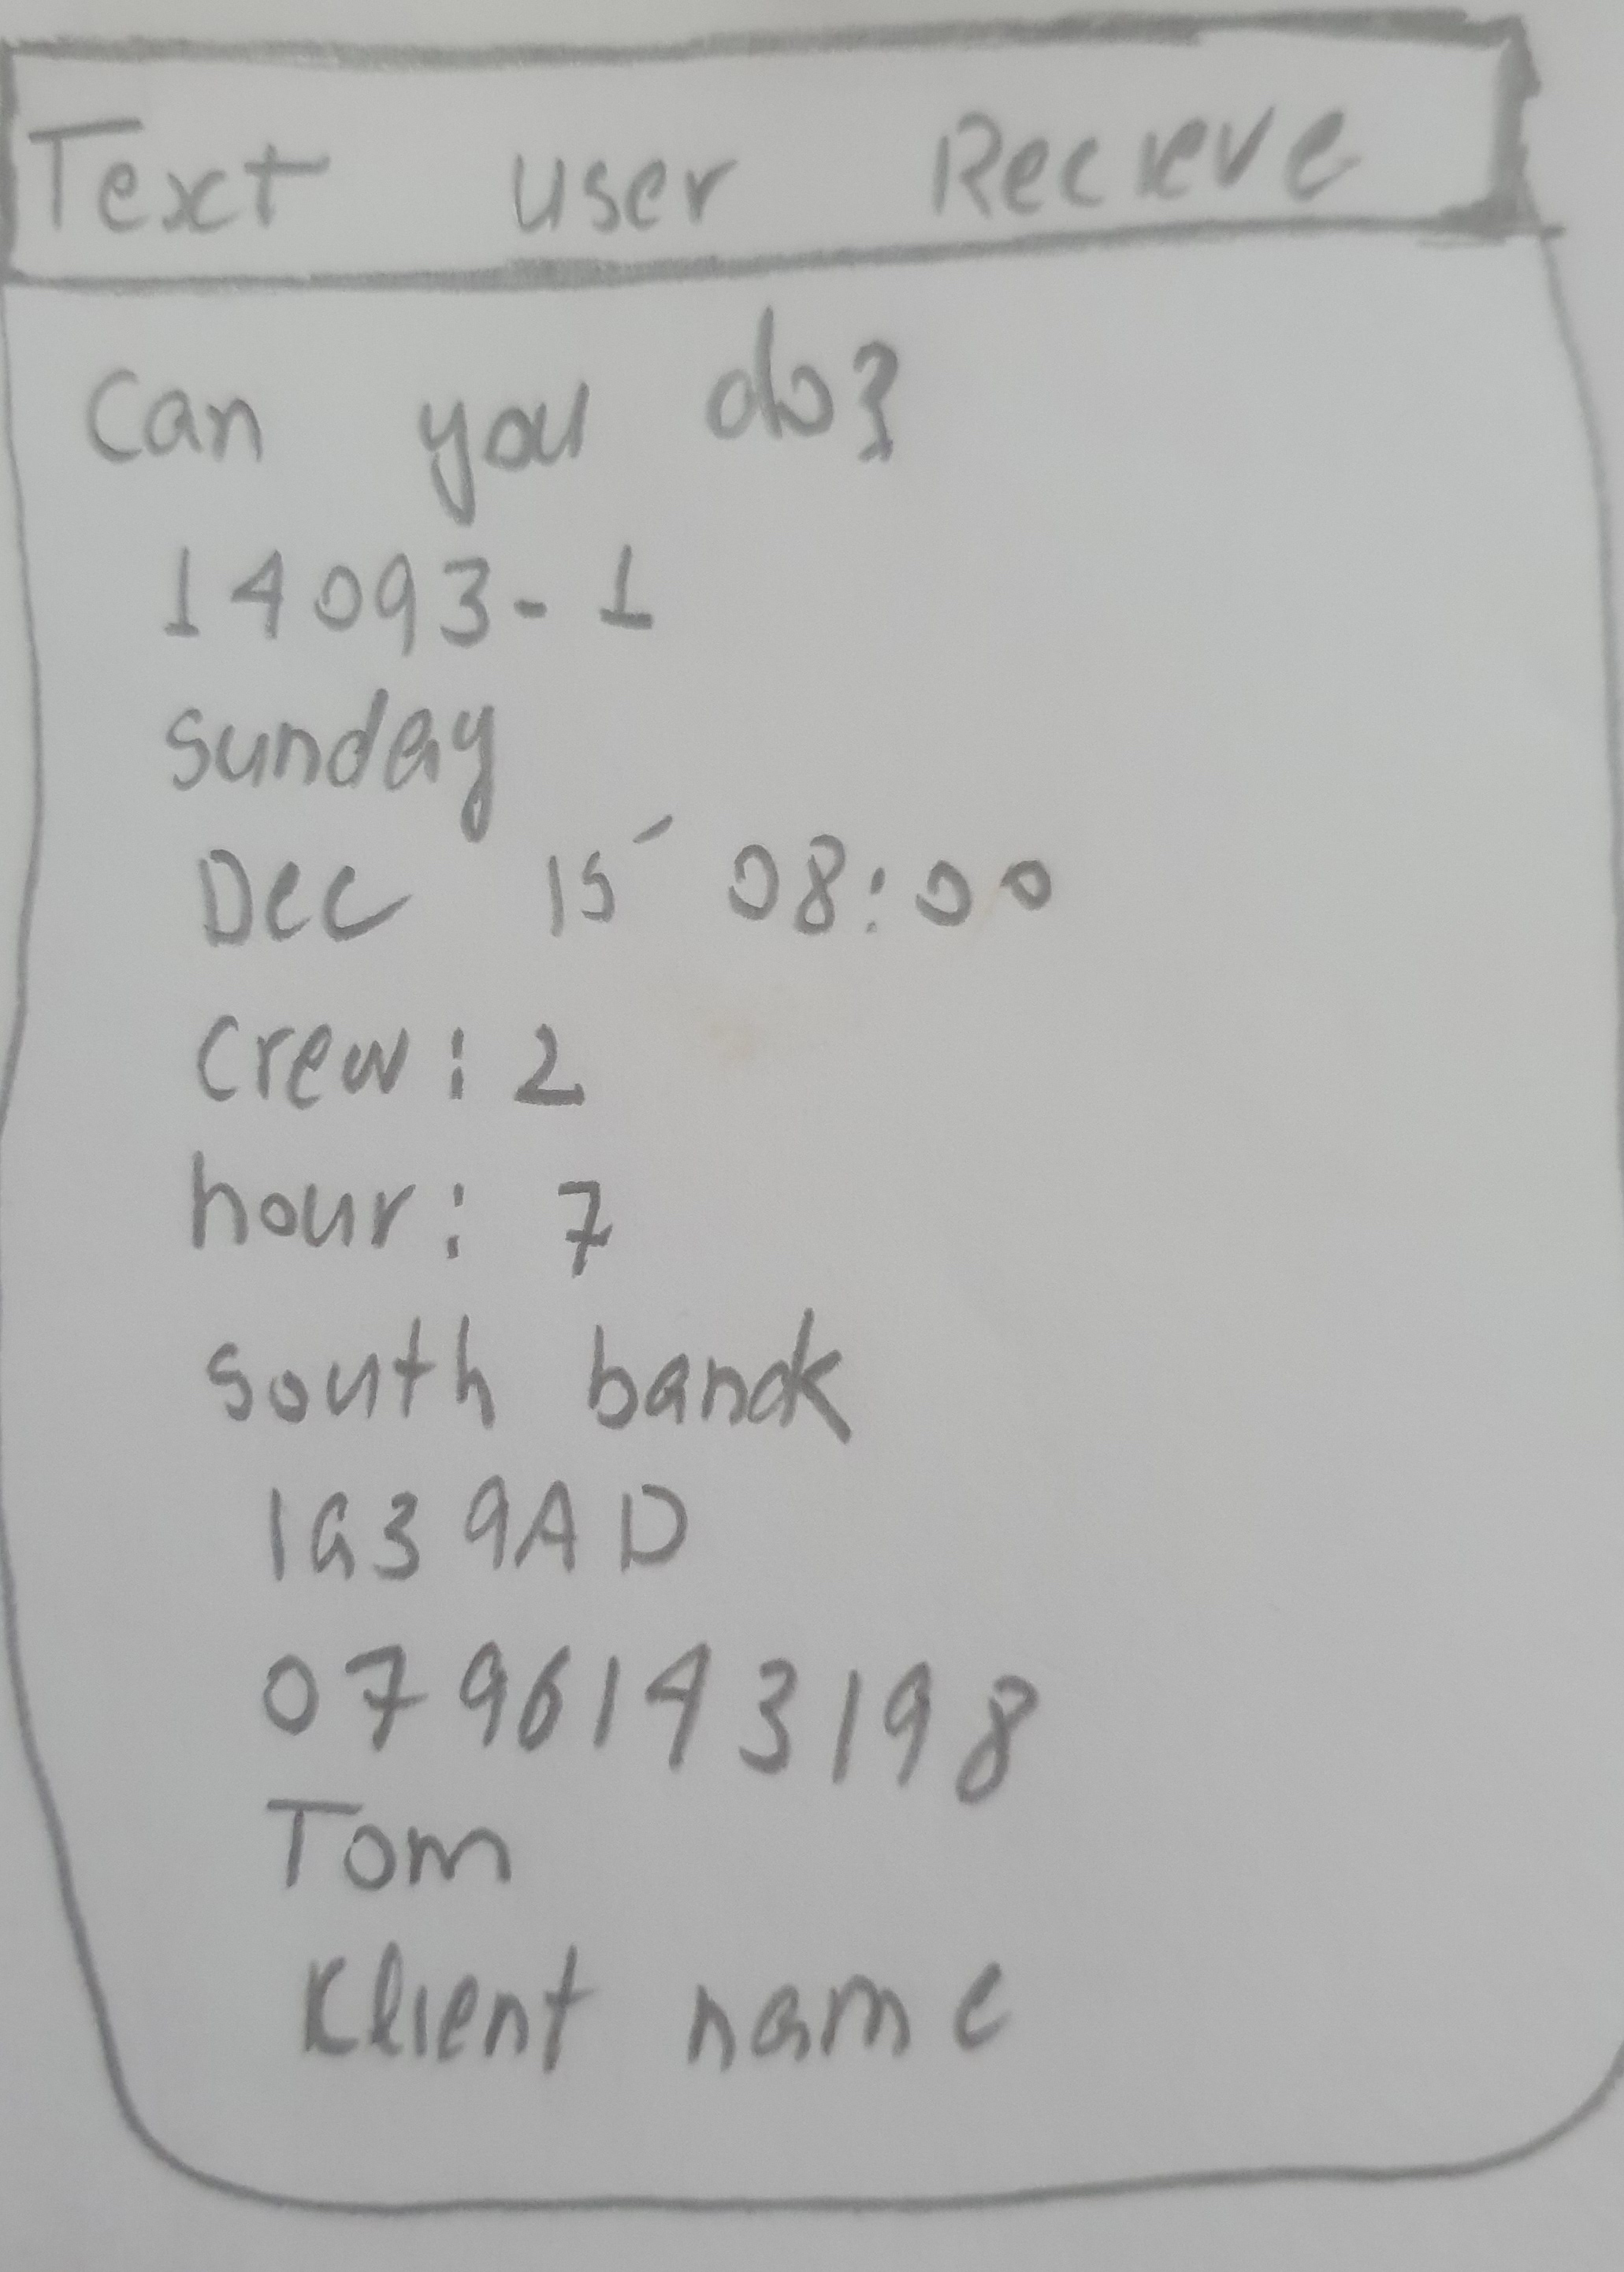 Text user Recieve
Can you do?
14093-1
Sunday
Dec 15 08:00
crew: 2
hour: 7
south banck
1G3 9AD
0796143198
Tom
Klient name